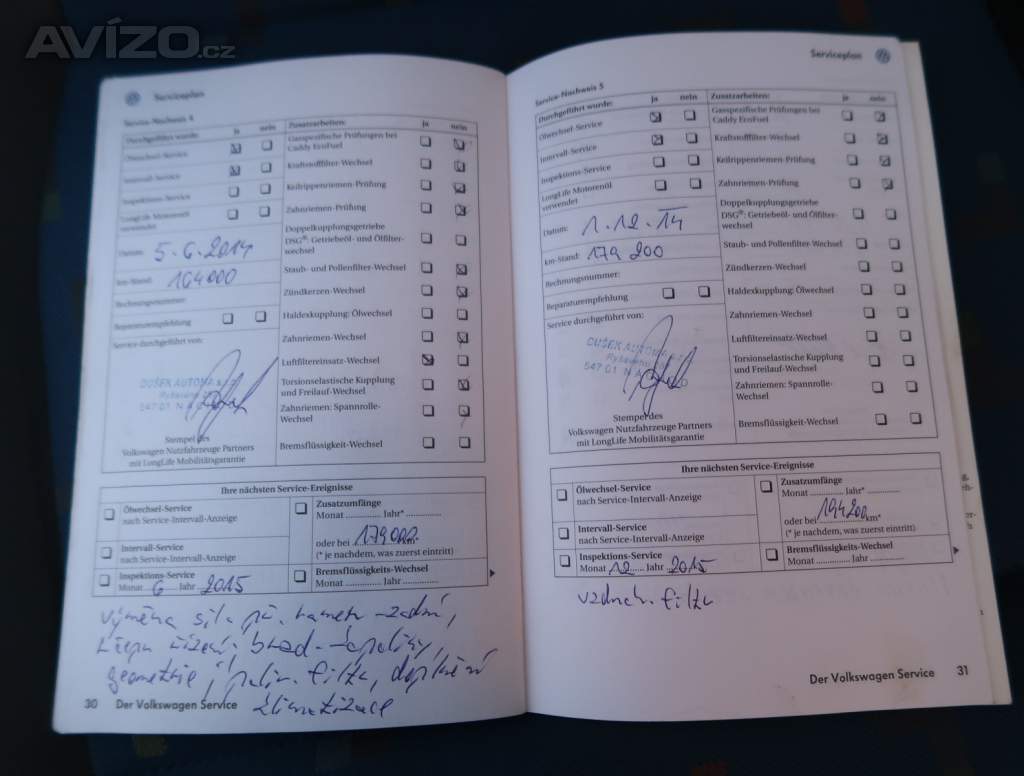 AVÍZO.cz
Serviceplan
Service-Nachweis 4
Durchgeführt wurde: ja nein
Ölwechsel-Service
Intervall-Service
Inspektions-Service
LongLife Motorenöl
verwendet
Datum: 5.6.2014
km-Stand: 164000
Rechnungsnummer:
Reparaturempfehlung
Service durchgeführt von:
DUŠEK AUTOMA s.r.o.
547 01 NA
Stempel des
Volkswagen Nutzfahrzeuge Partners
mit LongLife Mobilitätsgarantie
Zusatzarbeiten: ja nein
Gasspezifische Prüfungen bei
Caddy EcoFuel
Kraftstofffilter-Wechsel
Keilrippenriemen-Prüfung
Zahnriemen-Prüfung
Doppelkupplungsgetriebe
DSG®: Getriebeöl- und Ölfilter-
wechsel
Staub- und Pollenfilter-Wechsel
Zündkerzen-Wechsel
Haldexkupplung: Ölwechsel
Zahnriemen-Wechsel
Luftfiltereinsatz-Wechsel
Torsionselastische Kupplung
und Freilauf-Wechsel
Zahnriemen: Spannrolle-
Wechsel
Bremsflüssigkeit-Wechsel
Ihre nächsten Service-Ereignisse
Ölwechsel-Service
nach Service-Intervall-Anzeige
Intervall-Service
nach Service-Intervall-Anzeige
Inspektions-Service
Monat 6 Jahr 2015
Zusatzumfänge
Monat ............. Jahr*.............
oder bei 179000 km*
(* je nachdem, was zuerst eintritt)
Bremsflüssigkeits-Wechsel
Monat ............. Jahr .............
výměna sil. př. ramen - zadní,
řízení,
geometrie, filtr, doplnění
klimatizace
30 Der Volkswagen Service
Serviceplan
Service-Nachweis 5
Durchgeführt wurde: ja nein
Ölwechsel-Service
Intervall-Service
Inspektions-Service
LongLife Motorenöl
verwendet
Datum: 1.12.14
km-Stand: 179 200
Rechnungsnummer:
Reparaturempfehlung
Service durchgeführt von:
DUŠEK AUTOMA s.r.o.
547 01 NA
Stempel des
Volkswagen Nutzfahrzeuge Partners
mit LongLife Mobilitätsgarantie
Zusatzarbeiten: ja nein
Gasspezifische Prüfungen bei
Caddy EcoFuel
Kraftstofffilter-Wechsel
Keilrippenriemen-Prüfung
Zahnriemen-Prüfung
Doppelkupplungsgetriebe
DSG®: Getriebeöl- und Ölfilter-
wechsel
Staub- und Pollenfilter-Wechsel
Zündkerzen-Wechsel
Haldexkupplung: Ölwechsel
Zahnriemen-Wechsel
Luftfiltereinsatz-Wechsel
Torsionselastische Kupplung
und Freilauf-Wechsel
Zahnriemen: Spannrolle-
Wechsel
Bremsflüssigkeit-Wechsel
Ihre nächsten Service-Ereignisse
Ölwechsel-Service
nach Service-Intervall-Anzeige
Intervall-Service
nach Service-Intervall-Anzeige
Inspektions-Service
Monat 12 Jahr 2015
Zusatzumfänge
Monat ............. Jahr*.............
oder bei 194200 km*
(* je nachdem, was zuerst eintritt)
Bremsflüssigkeits-Wechsel
Monat ............. Jahr .............
vzduch. filtr
Der Volkswagen Service 31